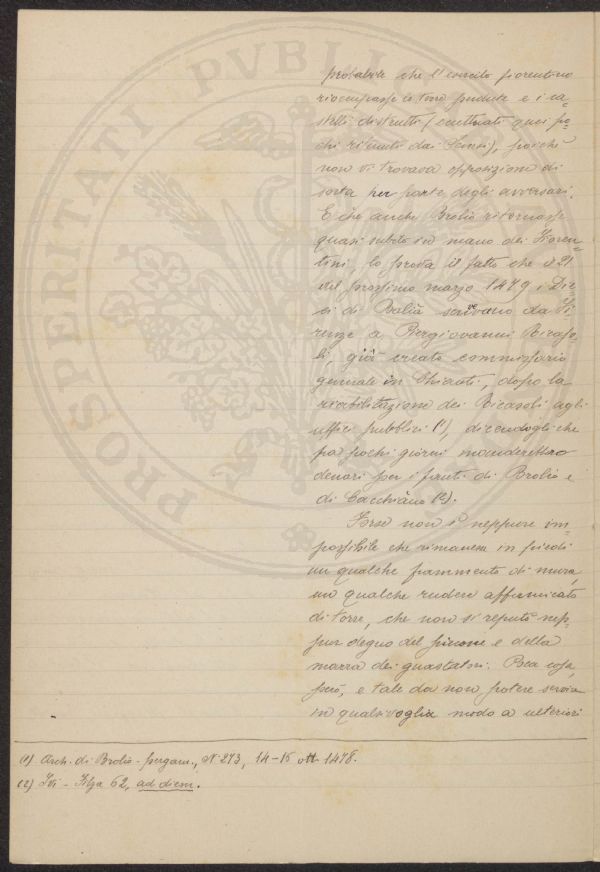 PROSPERITATI PVBLI
probabile che l'esercito fiorentino
rioccupasse le terre perdute e i ca=
stelli distrutti (eccettuati quei po=
chi ritenuti dai Senesi), poichè
non vi trovava opposizione di
sorta per parte degli avversari.
E che anche Brolio ritornasse
quasi subito in mano dei Fioren=
tini, lo prova il fatto che il 21
del prossimo marzo 1479 i Die=
ci di Balìa scrivevano da Fi=
renze a Pergiovanni Ricaso=
li, già creato commissario
generale in Chianti, dopo la
riabilitazione dei Ricasoli agli
uffici pubblici (1), dicendogli che
fra pochi giorni manderebbero
denari per i fanti di Brolio e
di Cacchiano (2).
Forse non è neppure im=
possibile che rimanesse in piedi
un qualche frammento di mura,
un qualche rudere affumicato
di torre, che non si reputò nep=
pur degno del piccone e della
marra dei guastatori. Poca cosa,
però, e tale da non potere servire
in qualsivoglia modo a ulteriori
(1) Arch. di Brolio - pergam., N° 273, 14-15 ott. 1478.
(2) Ivi - Filza 62, ad diem.